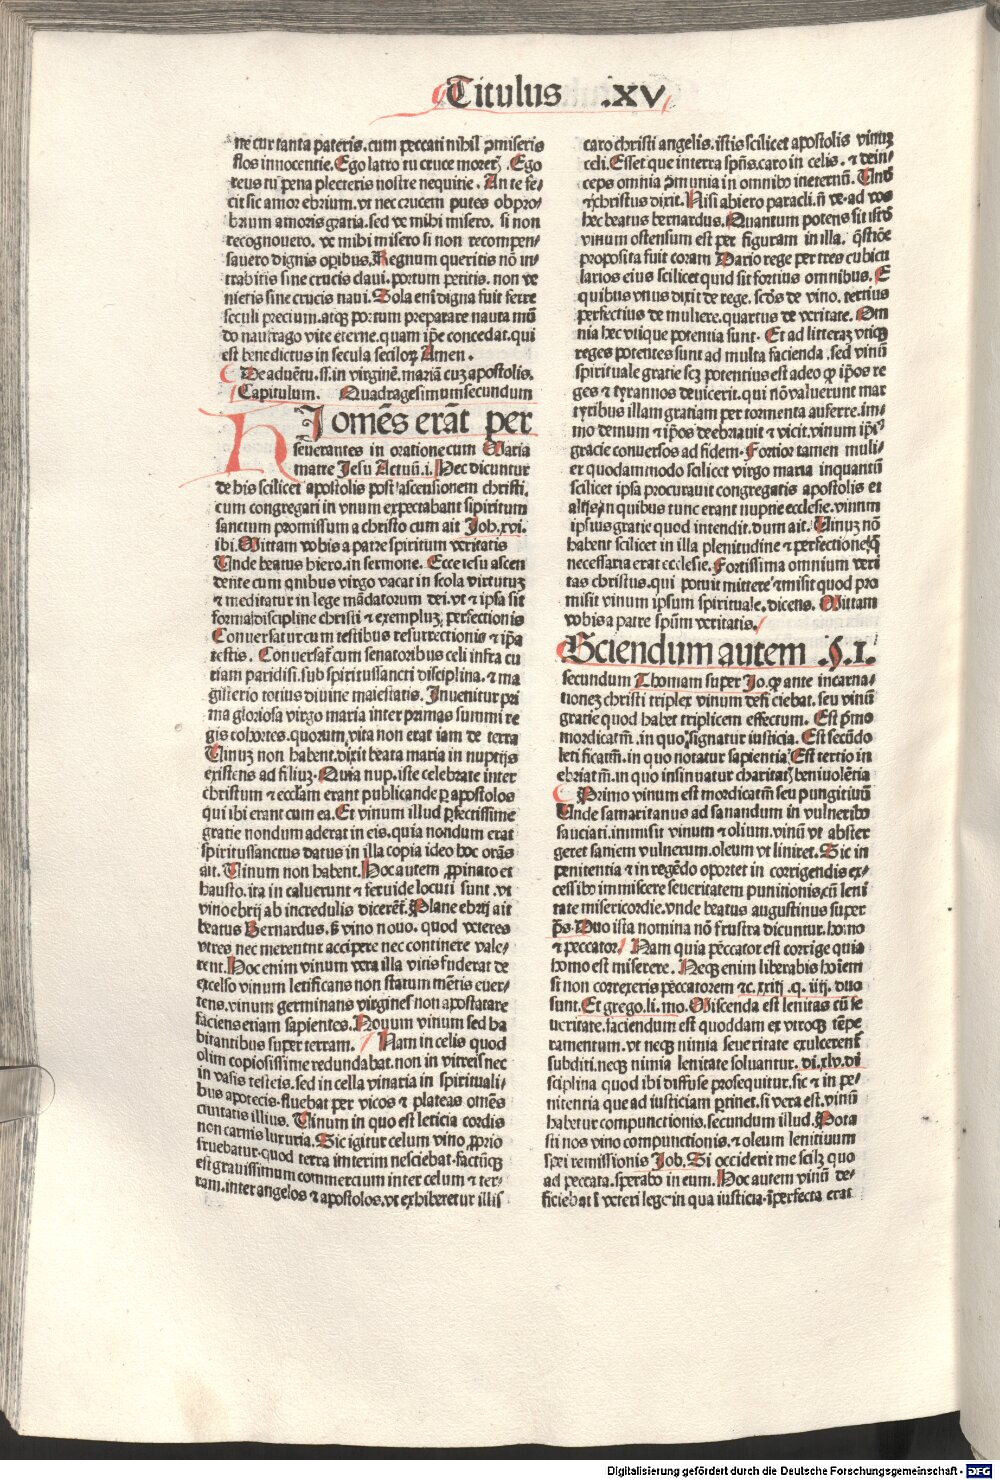 Titulus .XV
ne cur tanta pateris. cum peccati nihil ꝯmiseris
flos innocentie. Ego latro tu cruce moreř. Ego
reus tu pena plecteris nostre nequitie. An te fe⸗
cit sic amor ebrium. vt nec crucem putes obpro⸗
brium amoris gratia. sed ve mihi misero. si non
recognouero. ve mihi misero si non recompen⸗
sauero dignis oꝑibus. Regnum queritis nō in⸗
trabitis sine crucis claui. portum petitis. non ve
nietis sine crucis naui. Sola eni digna fuit ferre
seculi precium. atqꝫ portum preparare nauta mū
do naufrago vite eterne. quam ip̄e concedat. qui
est benedictus in secula secloꝝ Amen.
De aduētu. ss. in virginē. mariā cuꝫ apostolis.
Capitulum. Quadragesimumsecundum
HI omēs erāt per
seuerantes in oratione cum Maria
matre Jesu Actuū. i. Hec dicuntur
de his scilicet apostolis post ascensionem christi.
cum congregati in vnum expectabant spiritum
sanctum promissum a christo cum ait Joh. xvi.
ibi. Mittam vobis a patre spiritum veritatis
Unde beatus hiero. in sermone. Ecce iesu ascen
dente cum quibus virgo vacat in scola virtutuꝫ
⁊ meditatur in lege mādatorum dei. vt ⁊ ipsa sit
forma discipline christi ⁊ exempluꝫ perfectionis
Conuersatur cum testibus resurrectionis ⁊ ip̄a
testis. Conuersat̄ cum senatoribus celi infra cu
riam paridisi. sub spiritussancti disciplina. ⁊ ma
gisterio totius diuine maiestatis. Inuenitur pri
ma gloriosa virgo maria inter primas summi re
gis cohortes. quorum vita non erat iam de terra
Uinuꝫ non habent. dixit beata maria in nuptijs
existens ad filiuꝫ. Quia nup. iste celebrate inter
christum ⁊ eccłam erant publicande ꝑ apostolos
qui ibi erant cum ea. Et vinum illud ꝑfectissime
gratie nondum aderat in eis. quia nondum erat
spiritussanctus datus in illa copia ideo hoc orās
ait. Uinum non habent. Hoc autem ꝓpinato et
hausto. ita in caluerunt ⁊ feruide locuti sunt. vt
vino ebrij ab incredulis dicerēt. Plane ebrij ait
beatus Bernardus. s̄ vino nouo. quod veteres
vtres nec merentur accipere nec continere vale⸗
rent. Hoc enim vinum vera illa vitis fuderat de
excelso vinum letificans non statum mētis euer⸗
tens. vinum germinans virgines non apostatare
faciens etiam sapientes. Nouum vinum sed ha
bitantibus super terram. Nam in celis quod
olim copiosissime redundabat. non in vitreis nec
in vasis testeis. sed in cella vinaria in spirituali⸗
bus apotecis. fluebat per vicos ⁊ plateas omēs
ciuitatis illius. Uinum in quo est leticia cordis
non carnis luxuria. Sic igitur celum vino ꝓprio
fruebatur. quod terra interim nesciebat. factūqꝫ
est grauissimum commercium inter celum ⁊ ter⸗
ram. inter angelos ⁊ apostolos. vt exhiberetur illis
caro christi angelis. istis scilicet apostolis vinuꝫ
celi. Esset que in terra spūs. caro in celis. ⁊ dein⸗
ceps omnia ꝯmunia in omnibꝰ in eternū. Unde
⁊ christus dixit. Nisi abiero paracli. ñ ve. ad vos
hec beatus bernardus. Quantum potens sit istd̄
vinum ostensum est per figuram in illa. q̄stiōe
proposita fuit coram Dario rege per tres cubicu
larios eius scilicet quid sit fortius omnibus. E
quibus vnus dixit de rege. scd̄s de vino. tertius
perfectius de muliere. quartus de veritate. Om
nia hec vtique potentia sunt. Et ad litteraꝫ vtiqꝫ
reges potentes sunt ad multa facienda. sed vinū
spirituale gratie scꝫ potentius est adeo ꝙ ip̄os re
ges ⁊ tyrannos deuicerit. qui nō valuerunt mar
tyribus illam gratiam per tormenta auferre. im⸗
mo demum ⁊ ip̄os deebriauit ⁊ vicit. vinum ip̄i
gracie conuersos ad fidem. Fortior tamen muli⸗
er quodammodo scilicet virgo maria inquantū
scilicet ipsa procurauit congregatis apostolis et
alijs in quibus tunc erant nuptie ecclesie. vinum
ipsius gratie quod intendit. dum ait. Uinuꝫ nō
habent scilicet in illa plenitudine ⁊ perfectione qꝫ
necessaria erat ecclesie. Fortissima omnium veri
tas christus. qui potuit mittere ⁊ misit quod pro
misit vinum ipsum spirituale. dicens. Mittam
vobis a patre spūm veritatis.
Sciendum autem .§.I.
secundum Thomam super Jo. ꝙ ante incarna⸗
tioneꝫ christi triplex vinum deficiebat. seu vinū
gratie quod habet triplicem effectum. Est p̄mo
mordicatm̄. in quo signatur iusticia. Est secūdo
letificatm̄. in quo notatur sapientia Est tertio in
ebriatm̄. in quo insinuatur charitatꝫ beniuolētia
Primo vinum est mordicatm̄ seu pungitiuū
Unde samaritanus ad sanandum in vulneribꝰ
sauciati. immisit vinum ⁊ olium. vinū vt abster
geret saniem vulnerum. oleum vt liniret. Sic in
penitentia ⁊ in regēdo oportet in corrigendis ex⸗
cessibꝰ immiscere seueritatem punitionis. cū leni
tate misericordie. vnde beatus augustinus super
ps̄. Duo ista nomina nō frustra dicuntur. homo
⁊ peccator. Nam quia peccator est corrige quia
homo est miserere. Neqꝫ enim liberabis hoīem
si non correxeris peccatorem ⁊c. xxiij. q. iiij. duo
sunt. Et grego. li. mo. Miscenda est lenitas cū se
ueritate. faciendum est quoddam ex vtroqꝫ tēpe
ramentum. vt neqꝫ nimia seueritate exulcerent̄
subditi. neqꝫ nimia lenitate soluantur. di. xlv. di
sciplina quod ibi diffuse prosequitur. sic ⁊ in pe⸗
nitentia que ad iusticiam ꝑtinet. si vera est. vinū
habetur compunctionis. secundum illud. Pota
sti nos vino compunctionis. ⁊ oleum lenitiuum
spei remissionis Job. Si occiderit me scilꝫ quo
ad peccata. sperabo in eum. Hoc autem vinū de⸗
ficiebat ī veteri lege in qua iusticia īperfecta erat
Digitalisierung gefördert durch die Deutsche Forschungsgemeinschaft - DFG